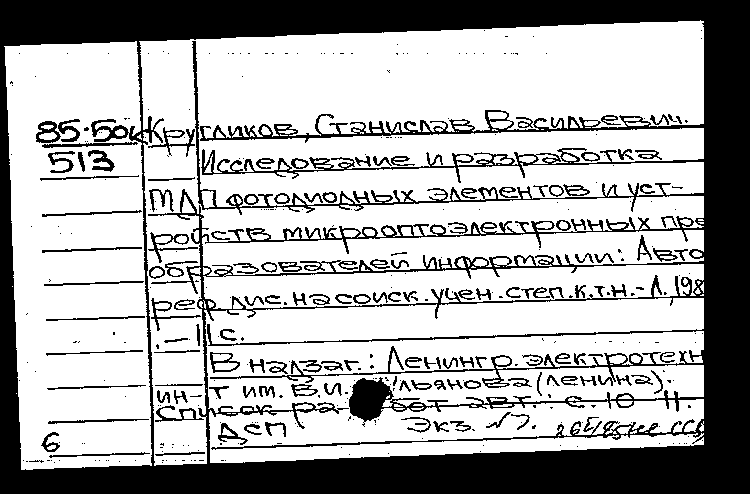 85-50к Кругликов, Станислав Васильевич.
513 Исследование и разработка
МДП фотодиодных элементов и уст-
ройств микрооптоэлектронных пре
образователей информации: Авто
реф. дис. на соиск. учен. степ. к.т.н. - Л., 198
. - 11 с.
В надзаг.: Ленингр. электротехн
ин-т им. В.И. Ульянова (Ленина).
Список работ авт.: с. 10 11.
ДСП Экз. №7.
6